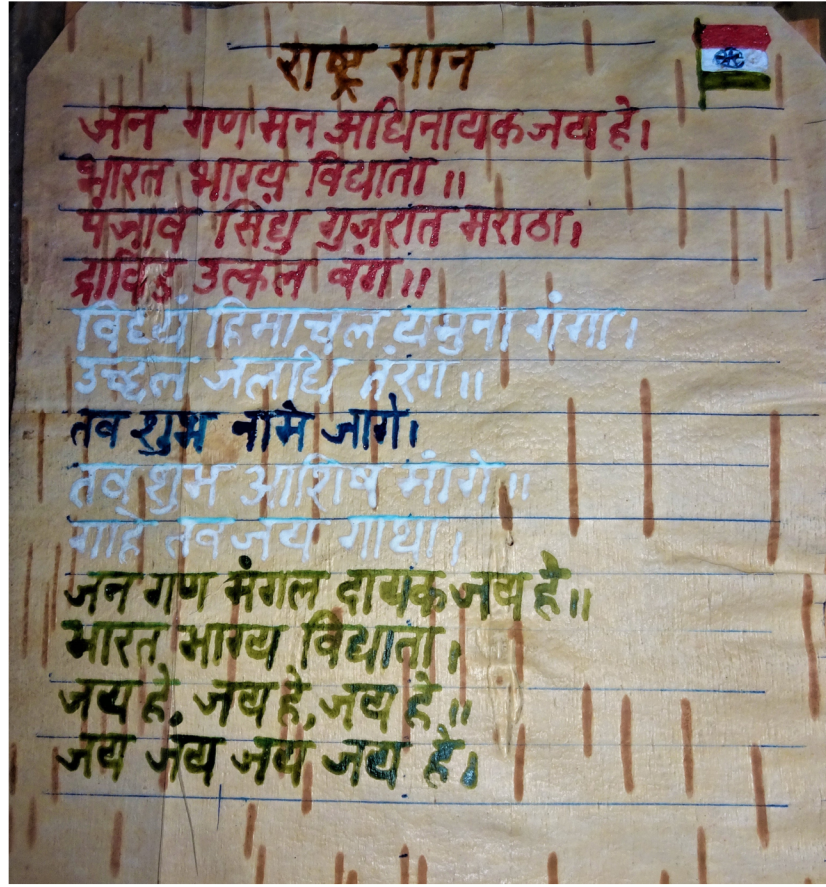 राष्ट्र गान
जन गण मन अधिनायक जय हे।
भारत भाग्य विधाता॥
पंजाब सिंधु गुजरात मराठा।
द्राविड़ उत्कल बंग॥
विंध्य हिमाचल यमुना गंगा।
उच्छल जलधि तंरग॥
तव शुभ नामे जागे।
तव शुभ आशिष मांगे॥
गाहे तव जय गाथा।
जन गण मंगल दायक जय हे॥
भारत भाग्य विधाता।
जय हे, जय हे, जय हे॥
जय जय जय जय हे।